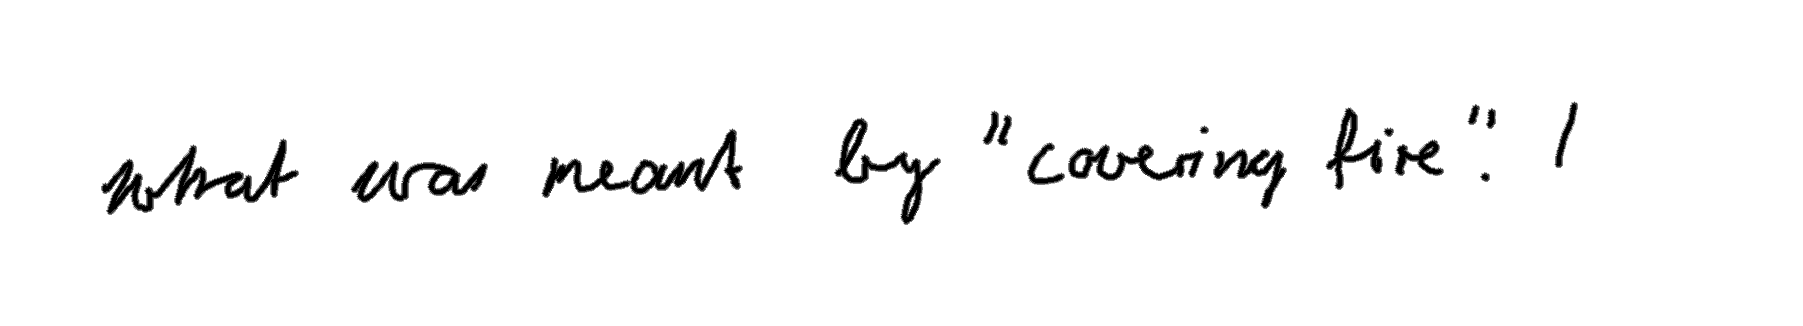 what was meant by "covering fire". I